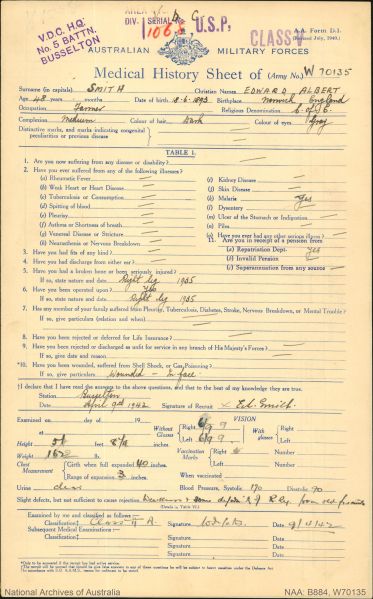 V.D.C. H.Q.
No. 5 BATTN.
BUSSELTON
DIV. 1 SERIAL
U.S.P.
CLASS
A.A. Form D.1.
(Revised July, 1940.)
AUSTRALIAN MILITARY FORCES
Medical History Sheet of (Army No.) W 70135
Surname (in capitals) SMITH Christian Names EDWARD ALBERT
Age 48 years months Date of birth 18-6-1893 Birthplace Norwich England
Occupation Farmer Religious Denomination C. of E.
Complexion Medium Colour of hair Dark Colour of eyes Grey
Distinctive marks, and marks indicating congenital
peculiarities or previous disease
TABLE 1.
1. Are you now suffering from any disease or disability?
2. Have you ever suffered from any of the following illnesses?
(a) Rheumatic Fever
(b) Weak Heart or Heart Disease
(c) Tuberculosis or Consumption
(d) Spitting of blood
(e) Pleurisy
(f) Asthma or Shortness of breath
(g) Venereal Disease or Stricture
(h) Neurasthenia or Nervous Breakdown
(i) Kidney Disease
(j) Skin Disease
(k) Malaria Yes
(l) Dysentery
(m) Ulcer of the Stomach or Indigestion
(n) Piles
(o) Have you ever had any other serious illness?
11. Are you in receipt of a pension from
(a) Repatriation Dept.
(b) Invalid Pension
(c) Superannuation from any source
3. Have you had fits of any kind?
4. Have you had discharge from either ear?
5. Have you had a broken bone or been seriously injured?
If so, state nature and date Right leg 1905
6. Have you been operated upon? Yes
If so, state nature and date Right leg 1905
7. Has any member of your family suffered from Pleurisy, Tuberculosis, Diabetes, Stroke, Nervous Breakdown, or Mental Trouble?
If so, give particulars (relation and when)
8. Have you been rejected or deferred for Life Insurance?
9. Have you been rejected or discharged as unfit for service in any branch of His Majesty's Forces?
If so, give date and reason
*10. Have you been wounded, suffered from Shell Shock, or Gas Poisoning?
If so, give particulars Wounded - In face
†I declare that I have read the answers to the above questions, and that to the best of my knowledge they are true.
Station Busselton
Date April 9th 1942 Signature of Recruit E.A. Smith
Examined on day of 19
Height feet
Weight
Chest Measurement
Girth when full expanded 40 inches
Range of expansion 3 inches
VISION
Without Glasses Right 6/9
Left 6/9
With glasses Right
Left
Vaccination Marks Right
Left
When vaccinated
Urine clear Blood Pressure, Systolic 170 Diastolic 90
Slight defects, but not sufficient to cause rejection
(Details in Table VI.)
Examined by me and classed as follows:—
Classification† Class II A. Signature Date 9/4/42
Subsequent Medical Examinations:—
Classification† Signature Date
Classification† Signature Date
*Only to be answered if the recruit has had active service.
National Archives of Australia
NAA: B884, W70135